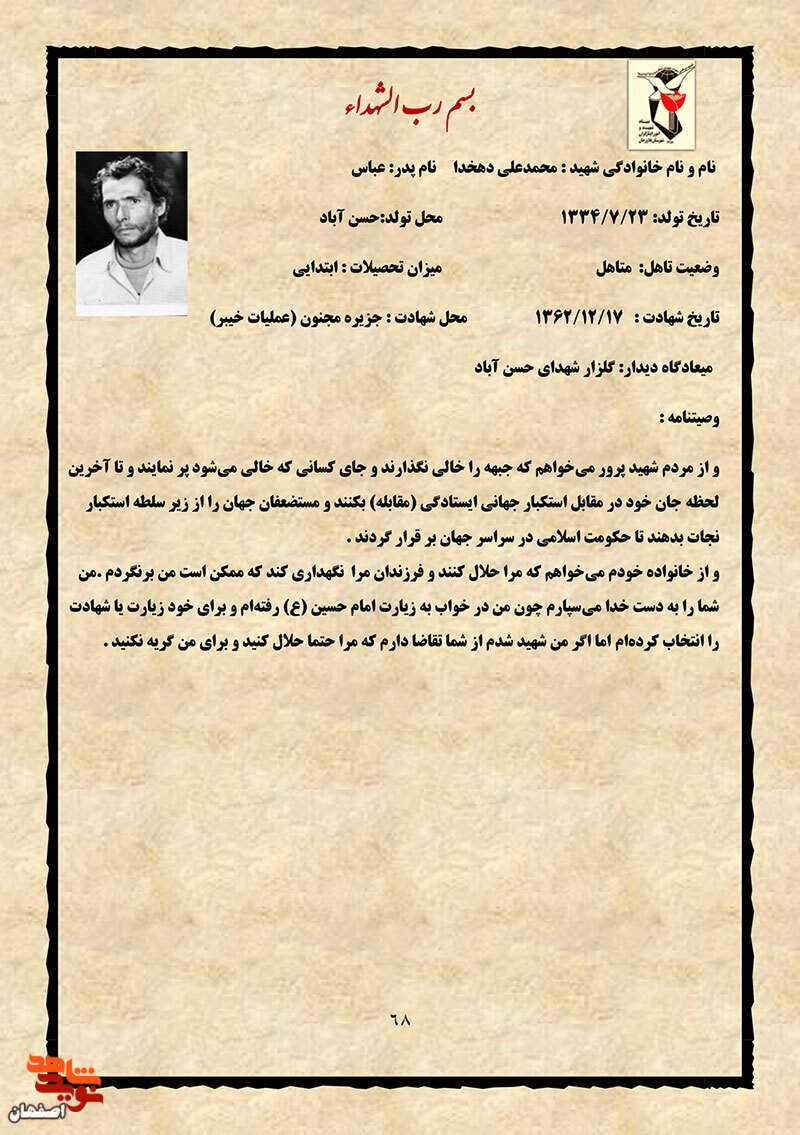 بسم رب الشهداء
بنیاد
شهید و
امور ایثارگران
نام و نام خانوادگی شهید : محمدعلی دهخدا    نام پدر: عباس
تاریخ تولد: ۱۳۳۴/۷/۲۳    محل تولد:حسن آباد
وضعیت تاهل:  متاهل    میزان تحصیلات : ابتدایی
تاریخ شهادت :  ۱۳۶۲/۱۲/۱۷    محل شهادت : جزیره مجنون (عملیات خیبر)
میعادگاه دیدار: گلزار شهدای حسن آباد
وصیتنامه :
و از مردم شهید پرور می‌خواهم که جبهه را خالی نگذارند و جای کسانی که خالی می‌شود پر نمایند و تا آخرین
لحظه جان خود در مقابل استکبار جهانی ایستادگی (مقابله) بکنند و مستضعفان جهان را از زیر سلطه استکبار
نجات بدهند تا حکومت اسلامی در سراسر جهان بر قرار گردند .
و از خانواده خودم می‌خواهم که مرا حلال کنند و فرزندان مرا  نگهداری کند که ممکن است من برنگردم .من
شما را به دست خدا می‌سپارم چون من در خواب به زیارت امام حسین (ع) رفته‌ام و برای خود زیارت یا شهادت
را انتخاب کرده‌ام اما اگر من شهید شدم از شما تقاضا دارم که مرا حتما حلال کنید و برای من گریه نکنید .
۶۸
نوید شاهد
اصفهان